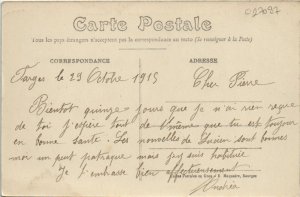 C27697
Carte Postale
Tous les pays étrangers n'acceptent pas la correspondance au recto (Se renseigner à la Poste)
CORRESPONDANCE
ADRESSE
Farges le 29 Octobre 1915
Cher Pierre
Bientôt quinze jours que je n'ai rien reçu
de toi j'espère tout de même que tu est toujour
en bonne santé. Les nouvelles de Lucien sont bonnes
moi un peut patraque mais pas suis habituée
Je t'embrasse bien affectueusement
Andréa